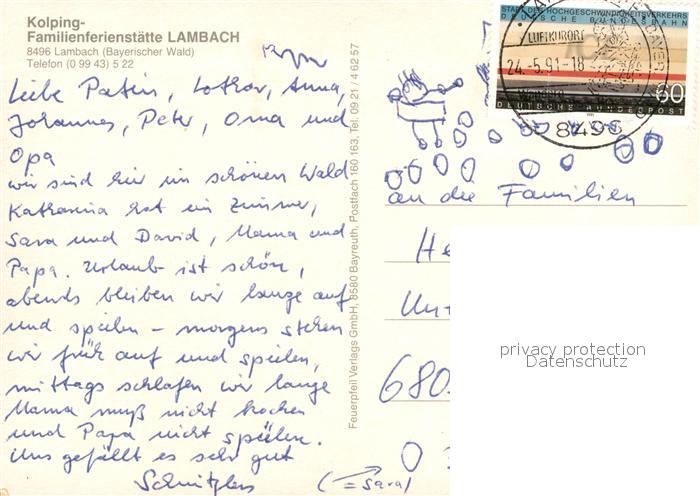 Kolping-
Familienferienstätte LAMBACH
8496 Lambach (Bayerischer Wald)
Telefon (0 99 43) 5 22
Liebe Patin, Lothar, Anna,
Johannes, Peter, Oma und
Opa
wir sind hier im schönen Wald
Katharina hat ein Zimmer,
Sara und David, Mama und
Papa. Urlaub ist schön,
abends bleiben wir lange auf
und spielen – morgens stehen
wir früh auf und spielen,
mittags schlafen wir lange
Mama muß nicht kochen
und Papa nicht spülen.
Uns gefällt es sehr gut
Schnitzlers
(= Sara)
Feuerpfeil Verlags GmbH, 8580 Bayreuth, Postfach 160 163, Tel. 09 21 / 4 62 57
START DES HOCHGESCHWINDIGKEITSVERKEHRS
DEUTSCHE BUNDESBAHN
60
DEUTSCHE BUNDESPOST
LUFTKURORT
24.-5.91-18
8496
an die Familien
He
Unt
680
privacy protection
Datenschutz